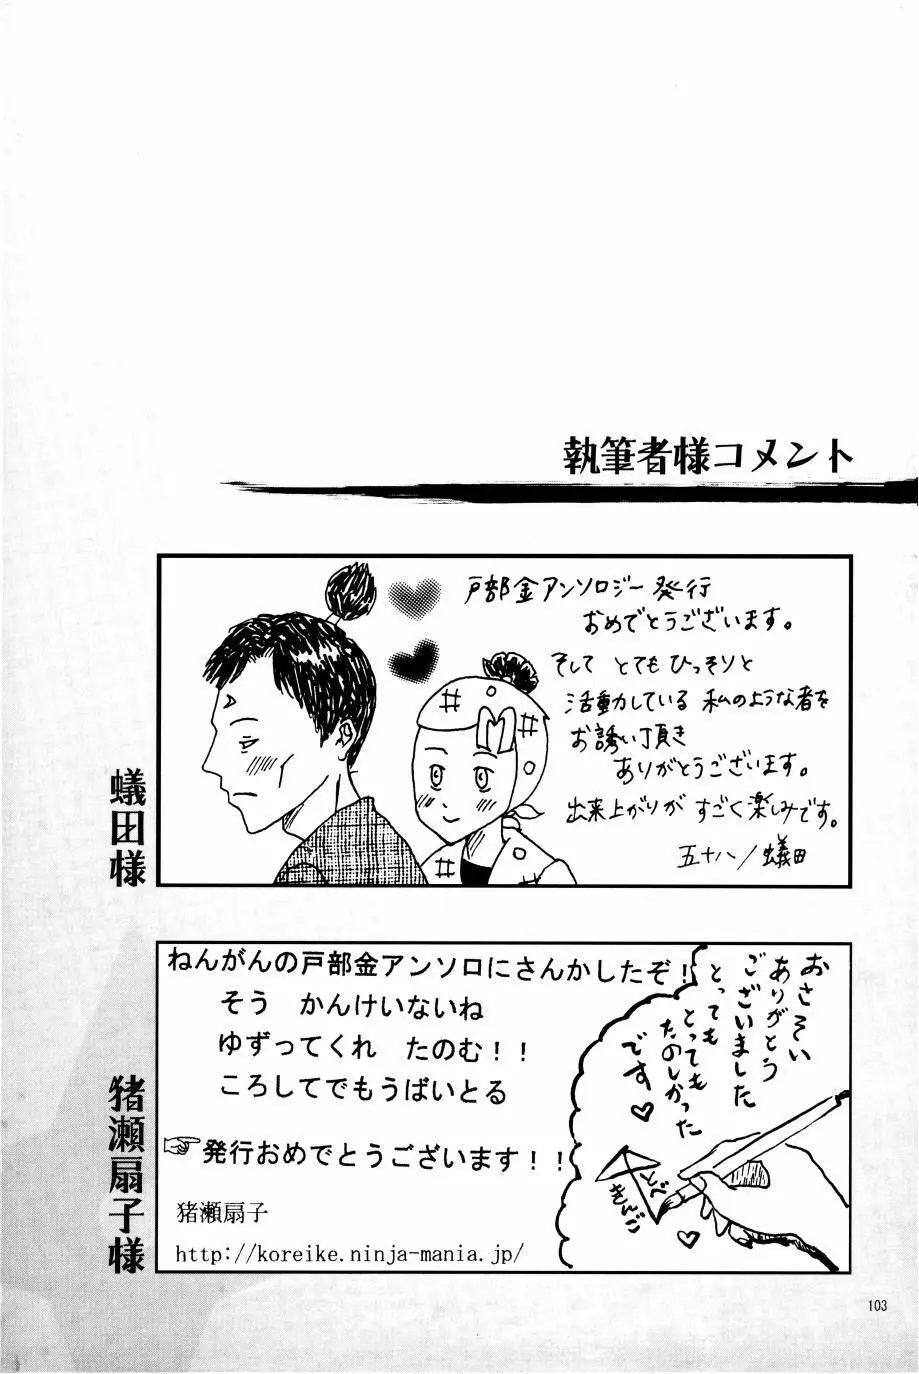 執筆者様コメント
蟻田様
戸部金アンソロジー発行
おめでとうございます。
そして とてもひっそりと
活動している 私のような者を
お誘い頂き
ありがとうございます。
出来上がりが すごく楽しみです。
五十八/蟻田
猪瀬扇子様
ねんがんの戸部金アンソロにさんかしたぞ!
そう かんけいないね
ゆずってくれ たのむ!!
ころしてでもうばいとる
☞発行おめでとうございます!!
猪瀬扇子
http://koreike.ninja-mania.jp/
おさそい
ありがとう
ございました
とっても
とっても
たのしかった
です♡
とべ
きんご
103